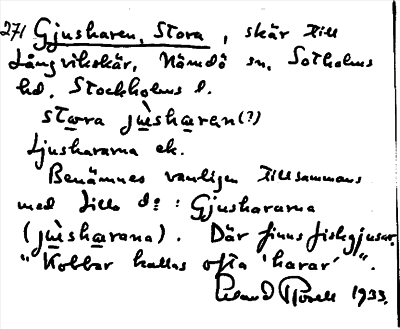 271 Gjusharen, Stora, skär till
Långviksskär, Nämdö sn, Sotholms
hd, Stockholms l.
stωra jùsharen (?)
Ljushararna ek.
Benämnes vanligen tillsammans
med Lilla d:o : Gjushararna
(jùsharana). Där finns fiskgjusar.
"Kobbar kallas ofta 'harar'".
1933.